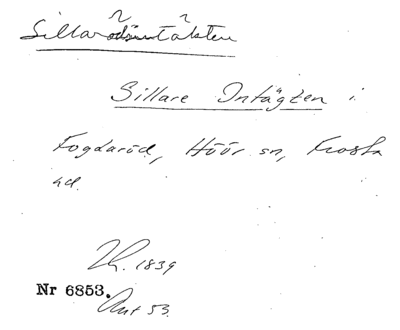 Sillarödsintäkten
Sillare Intägten i
Fogdaröd, Höör sn, Frosta
hd.
Th. 1839
Nr 6853.
Ant 53.